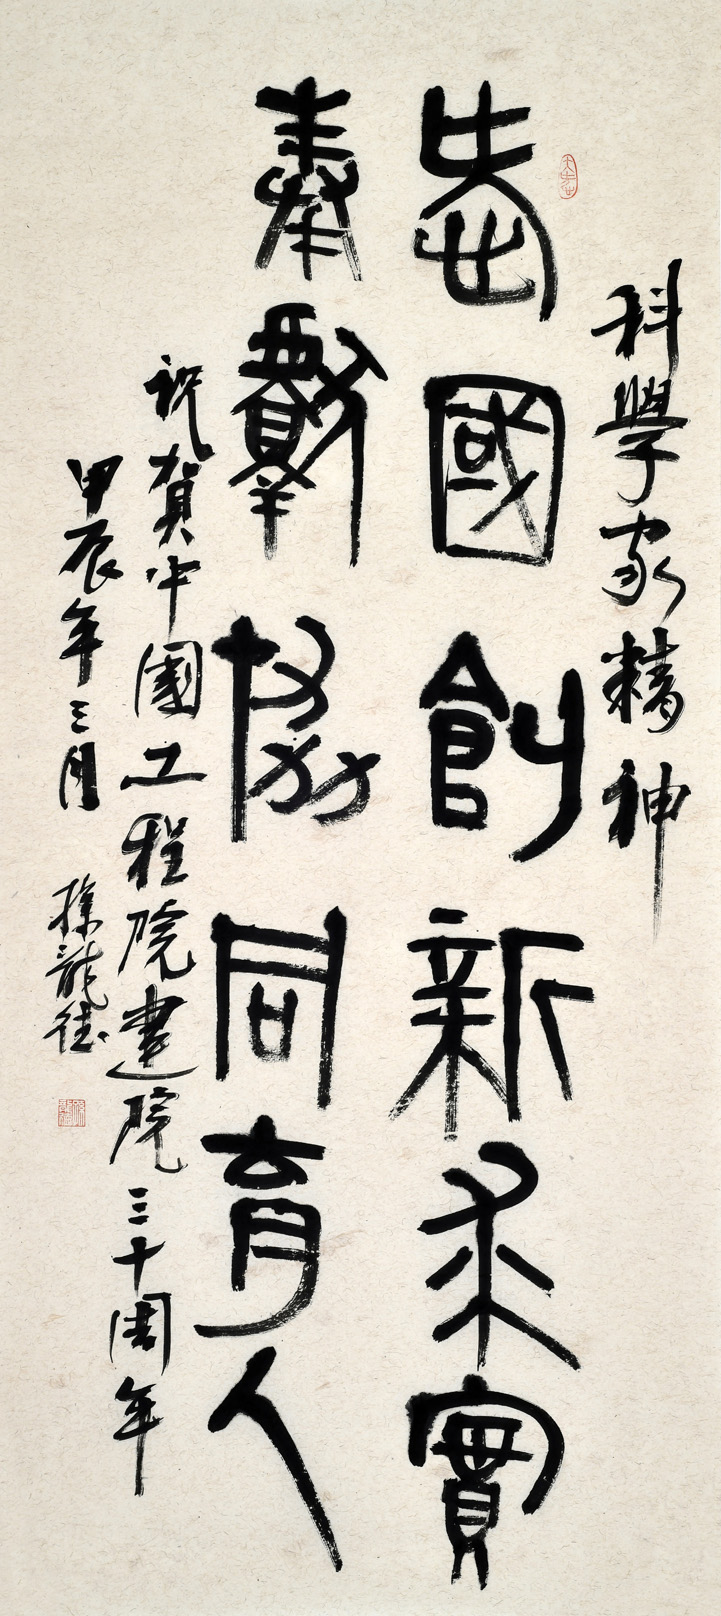 科學家精神
志國創新求實
奉獻協同育人
祝賀中國工程院建院三十周年
甲辰年三月
孫龍德